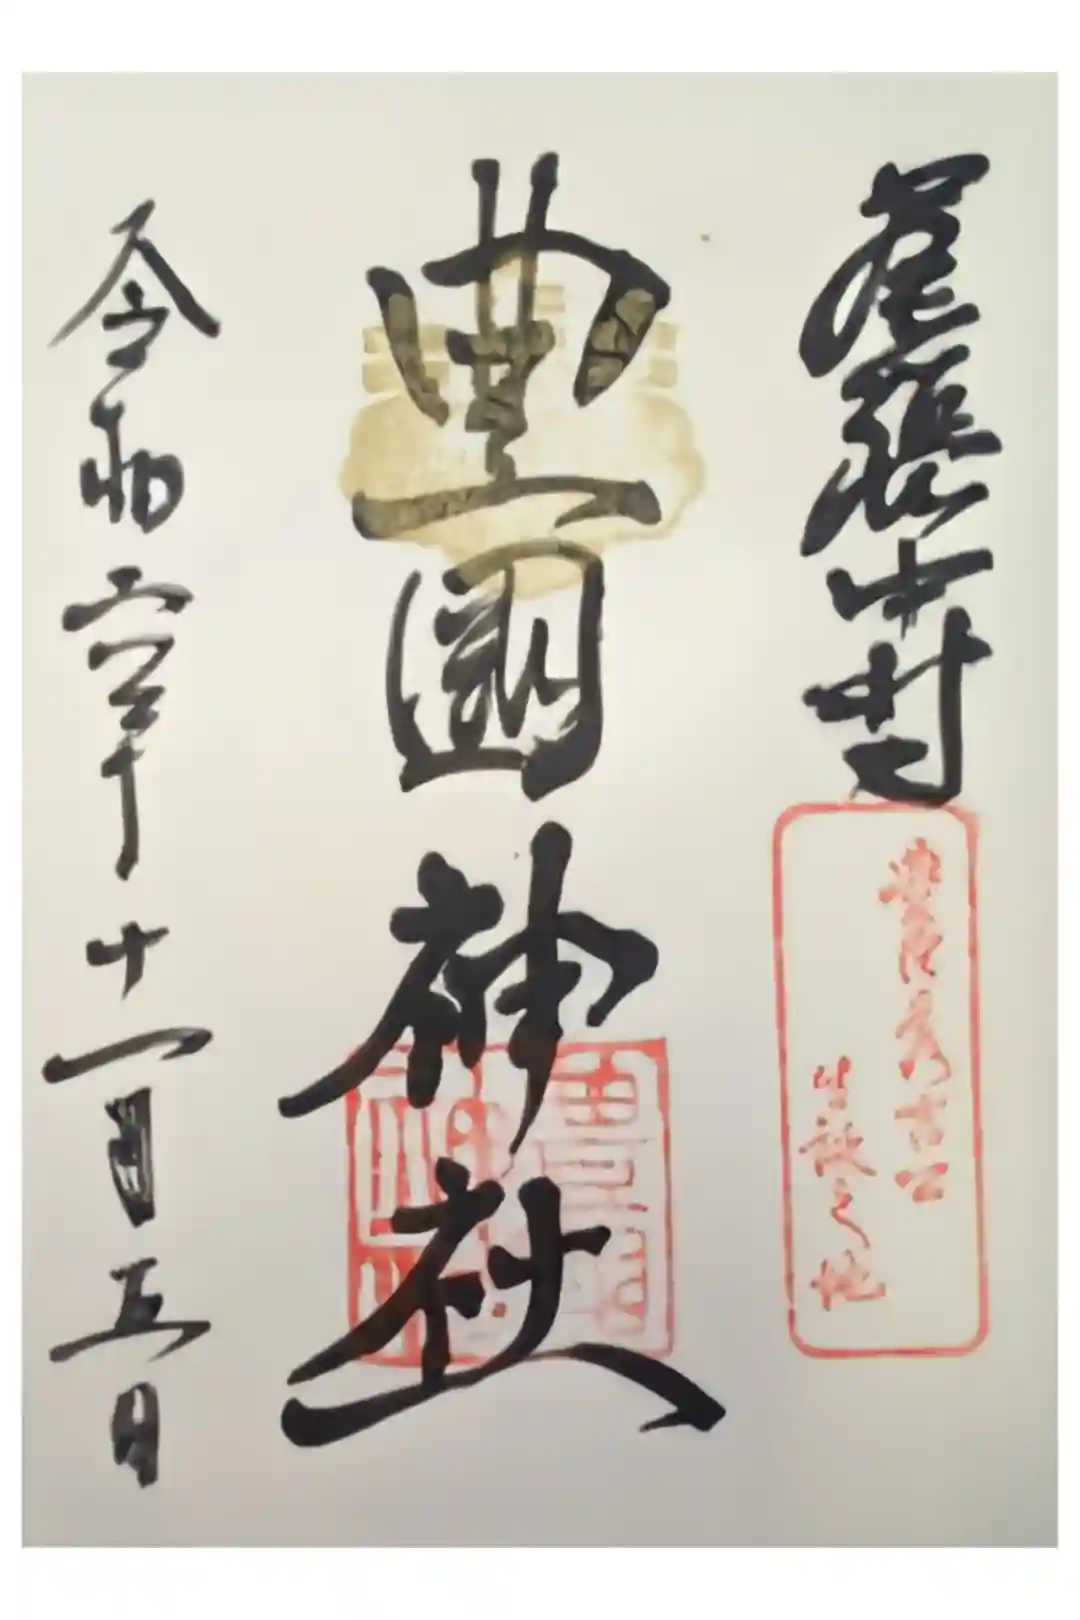 尾張中村
豊臣秀吉公
生誕之地
豊國神社
豊國
神社
令和六年十一月五日